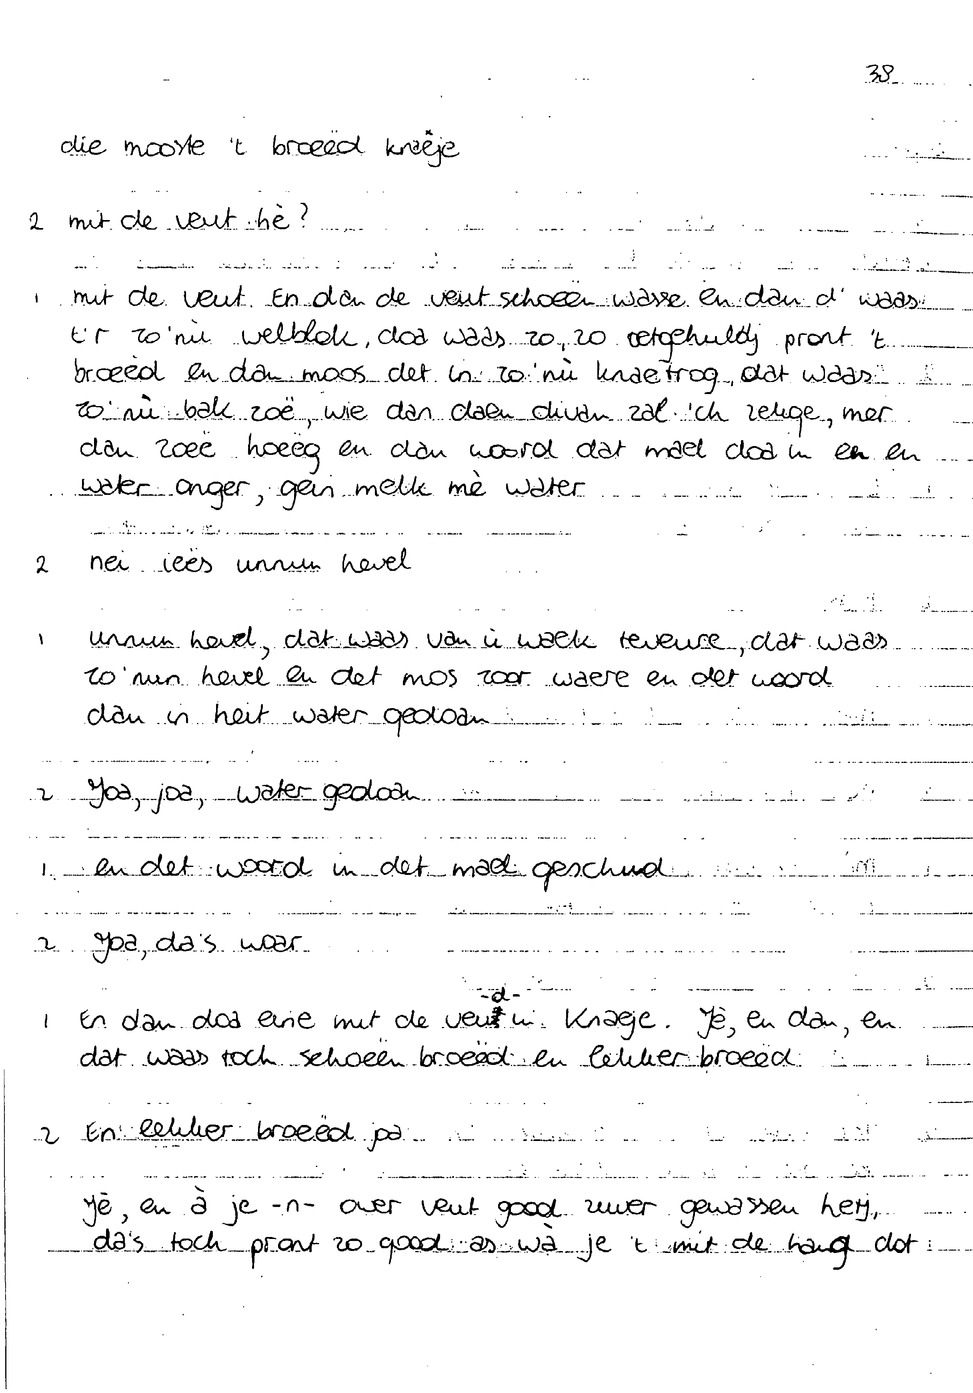 38
die mooste 't broeëd knaeje
2 mit de veut hè?
1 mit de veut. En dan de veut schoeën wasse en dan d' waas
t'r zo'nù welblok, doa waas zo, zo oetgehuldj pront 't
broeëd en dan moos det in zo'nù knaetrog, dat waas
zo'nù bak zoë, wie dan daen divan zal ich zekge, mer
dan zoeë hoeëg en dan woord dat mael doa in en en
water onger, gein melk mè water
2 nei ieës unnun hevel
1 unnun hevel, dat waas van ù waek teveure, dat waas
zo'nun hevel en det mos zoor waere en det woord
dan in heit water gedoan
2 Joa, joa, water gedoan
1 en det woord in det mael geschud
2 Joa, da's woar
-d-
1 En dan doa eine mit de veut in. Knaeje. Jè, en dan, en
dat waas toch schoeën broeëd en lekker broeëd
2 En lekker broeëd pa
Jè, en à je -n- over veut good zuver gewassen hetj,
da's toch pront zo good as wà je 't mit de hang dot